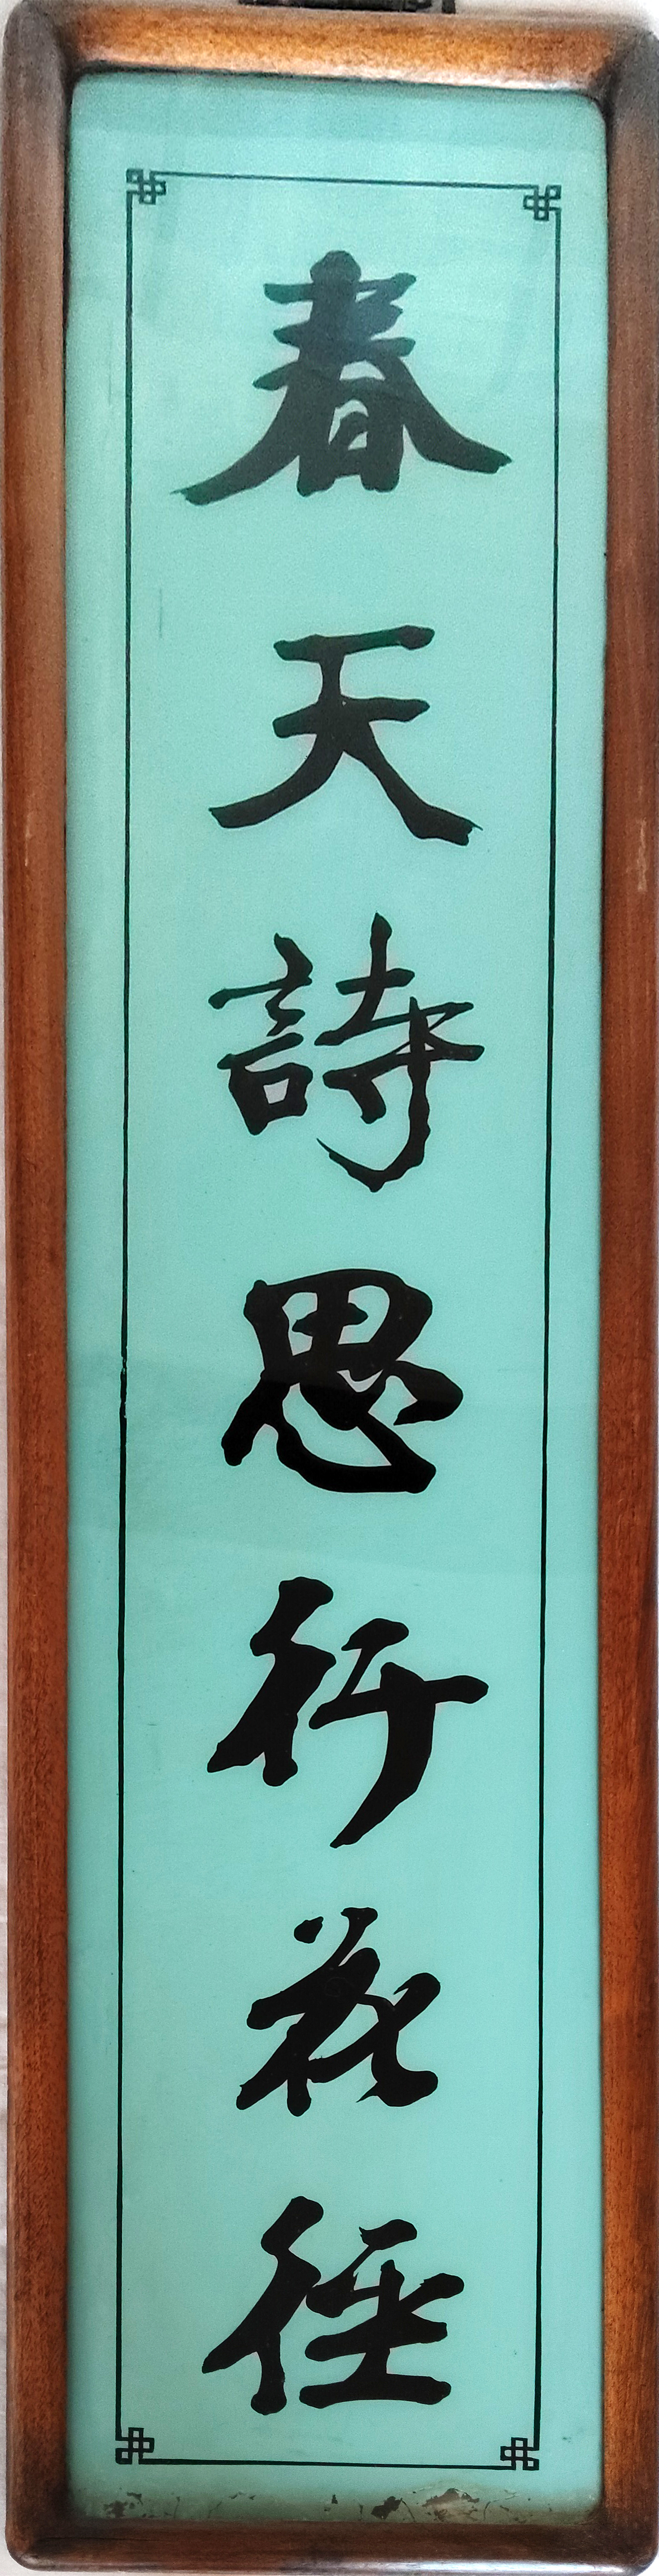 春天詩思行花徑